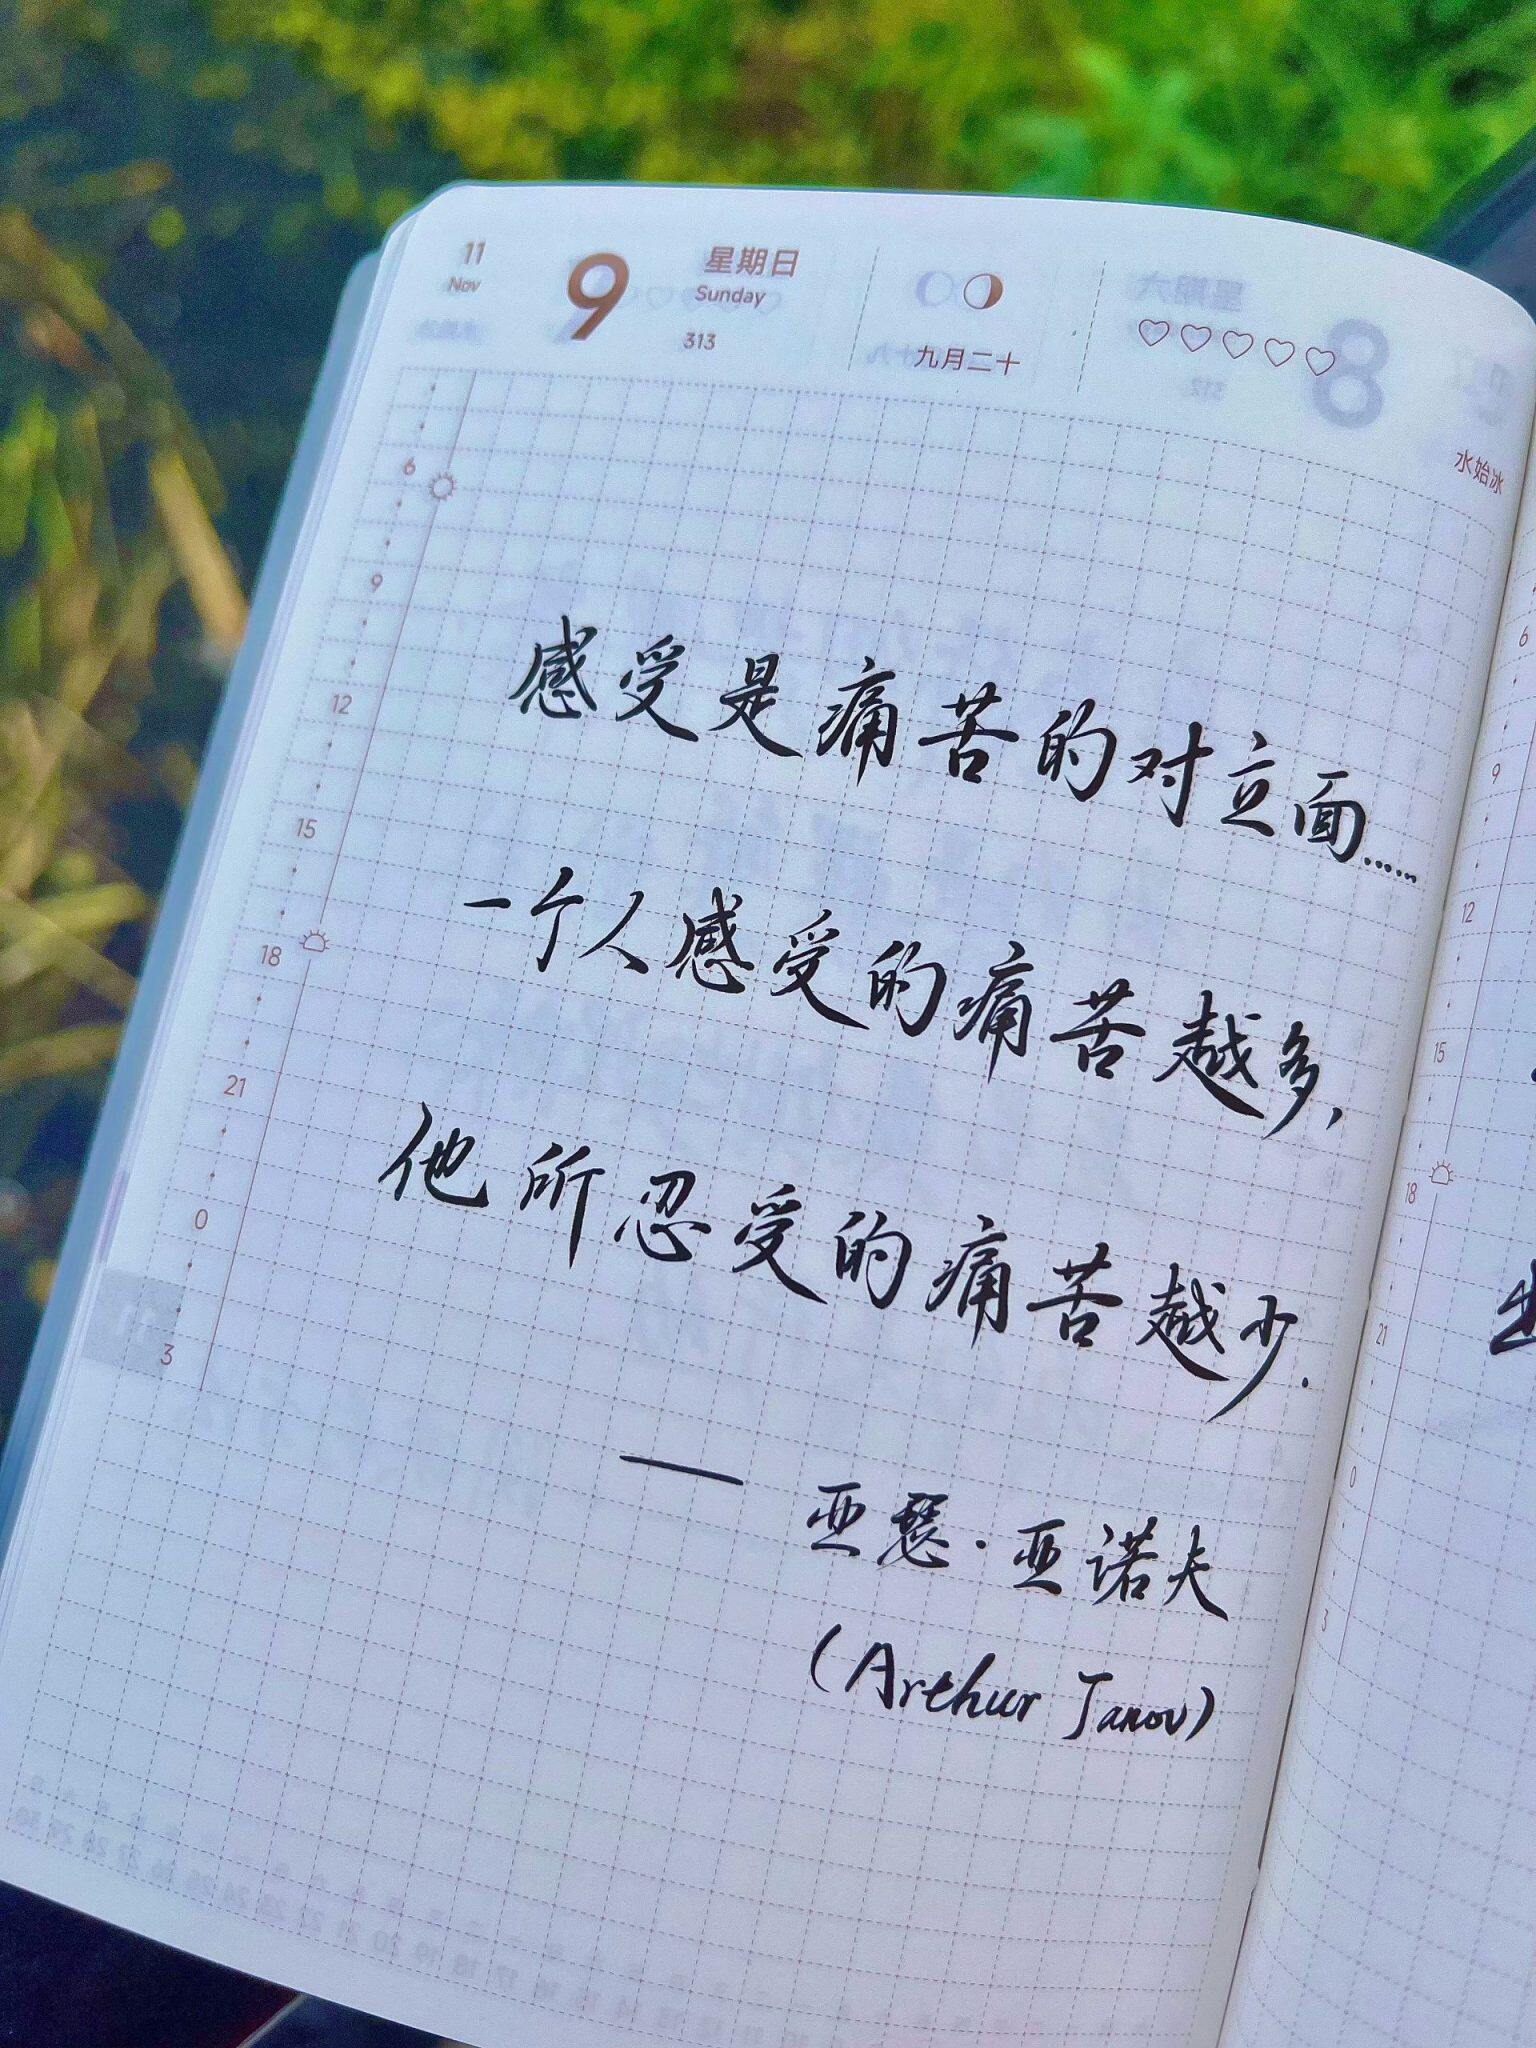 11
Nov
9
星期日
Sunday
313
九月二十
水始冰
6
9
12
15
18
21
0
3
感受是痛苦的对立面……
一个人感受的痛苦越多,
他所忍受的痛苦越少.
—— 亚瑟·亚诺夫
(Arthur Janov)
6
9
12
15
18
21
0
3